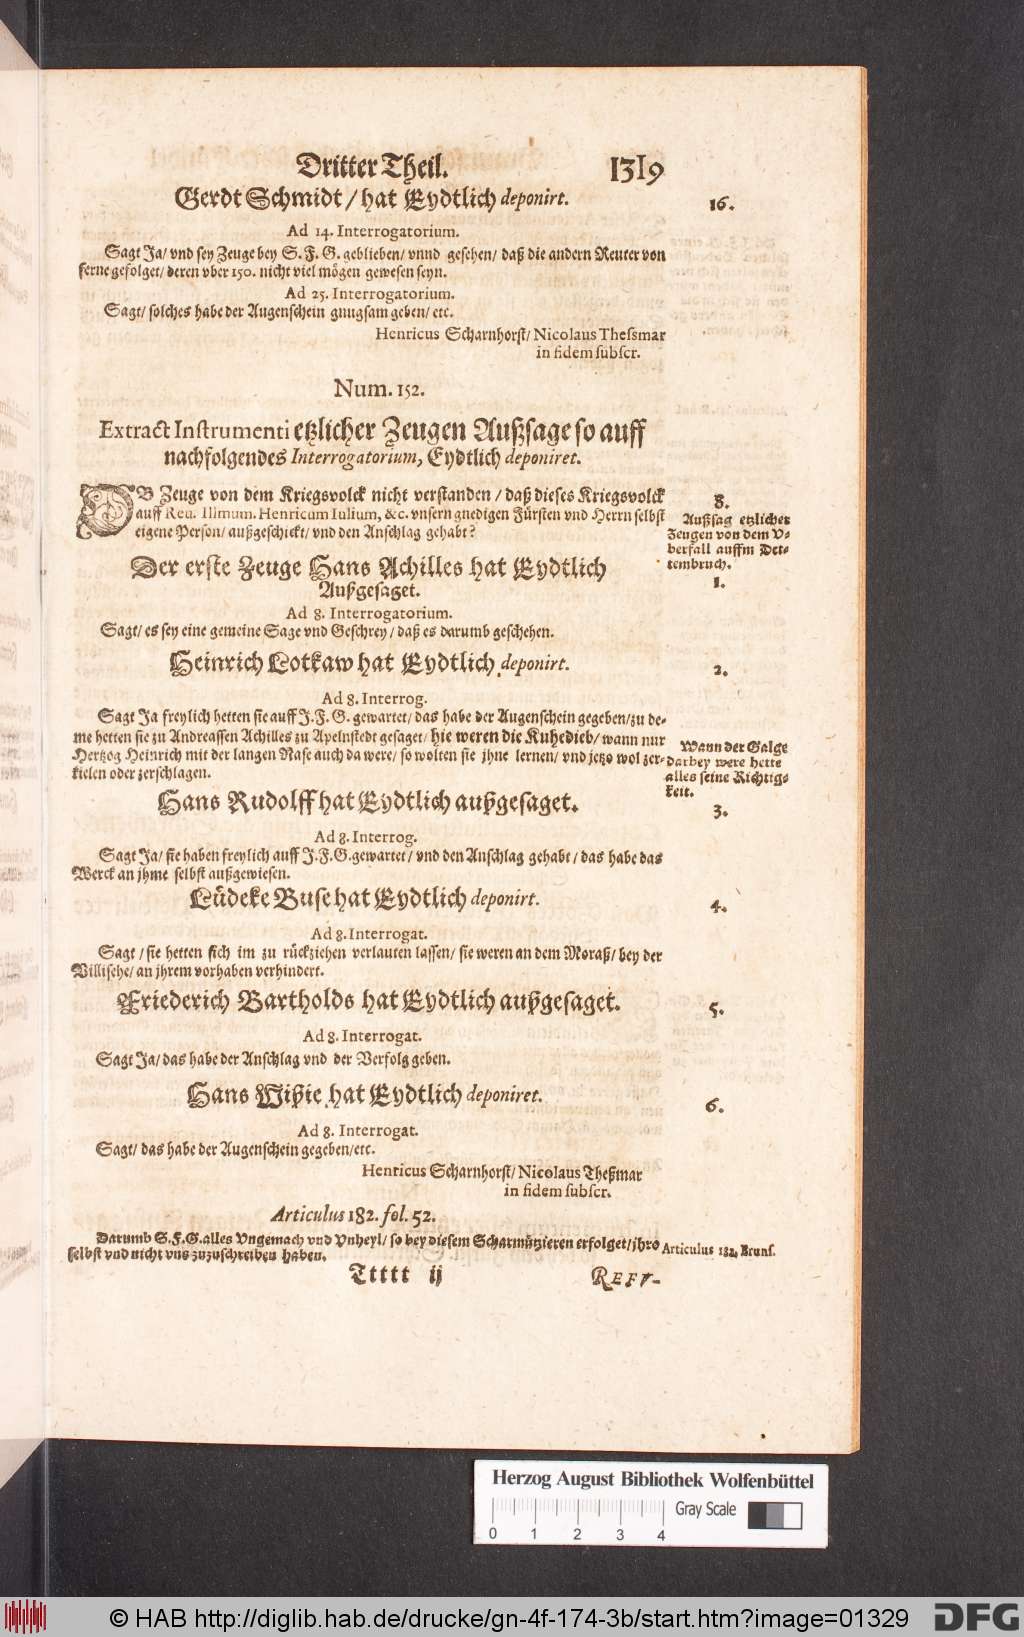 Dritter Theil. 1319
Gerdt Schmidt / hat Eydtlich deponirt. 16.
Ad 14. Interrogatorium.
Sagt Ja/ vnd sey Zeuge bey S. F. G. geblieben/ vnnd gesehen/ daß die andern Reuter von
ferne gefolget/ deren vber 150. nicht viel mögen gewesen seyn.
Ad 25. Interrogatorium.
Sagt/ solches habe der Augenschein gnugsam geben/ etc.
Henricus Scharnhorst/ Nicolaus Thessmar
in fidem subscr.
Num. 152.
Extract Instrumenti etzlicher Zeugen Außsage so auff
nachfolgendes Interrogatorium, Eydtlich deponiret.
OB Zeuge von dem Kriegsvolck nicht verstanden / daß dieses Kriegsvolck
auff Reu. Illmum. Henricum Iulium, &c. vnsern gnedigen Fürsten vnd Herrn selbst
eigene Person/ außgeschickt/ vnd den Anschlag gehabt?
8.
Außsag etzlicher
Zeugen von dem V-
berfall auffm Det-
tembruch.
Der erste Zeuge Hans Achilles hat Eydtlich
Außgesaget.
1.
Ad 8. Interrogatorium.
Sagt/ es sey eine gemeine Sage vnd Geschrey / daß es darumb geschehen.
Heinrich Lotkaw hat Eydtlich deponirt. 2.
Ad 8. Interrog.
Sagt Ja freylich hetten sie auff J. F. G. gewartet/ das habe der Augenschein gegeben/ zu de-
me hetten sie zu Andreassen Achilles zu Apelnstedt gesaget/ hie weren die Kuhedieb/ wann nur
Hertzog Heinrich mit der langen Nase auch da were/ so wolten sie jhne lernen/ vnd jetzo wol zer-
kielen oder zerschlagen.
Wann der Galge
darbey were hette
alles seine Richtig-
keit.
Hans Rudolff hat Eydtlich außgesaget. 3.
Ad 8. Interrog.
Sagt Ja/ sie haben freylich auff J. F. G. gewartet / vnd den Anschlag gehabt / das habe das
Werck an jhme selbst außgewiesen.
Lüdeke Buse hat Eydtlich deponirt. 4.
Ad 8. Interrogat.
Sagt / sie hetten sich im zu rückziehen verlauten lassen/ sie weren an dem Moraß/ bey der
Villische/ an jhrem vorhaben verhindert.
Friederich Bartholds hat Eydtlich außgesaget. 5.
Ad 8. Interrogat.
Sagt Ja/ das habe der Anschlag vnd der Verfolg geben.
Hans Wißie hat Eydtlich deponiret. 6.
Ad 8. Interrogat.
Sagt/ das habe der Augenschein gegeben/ etc.
Henricus Scharnhorst/ Nicolaus Theßmar
in fidem subscr.
Articulus 182. fol. 52.
Darumb S. F. G. alles Vngemach vnd Vnheyl/ so bey diesem Scharmützieren erfolget/ jhro
selbst vnd nicht vns zuzuschreiben haben.
Articulus 182. Bruns.
Ttttt ij REFV-
Herzog August Bibliothek Wolfenbüttel
Gray Scale
0 1 2 3 4
© HAB http://diglib.hab.de/drucke/gn-4f-174-3b/start.htm?image=01329 DFG